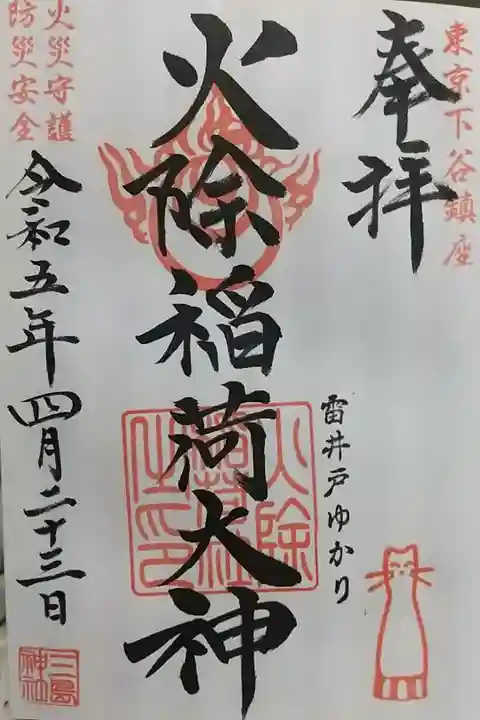 東京下谷鎮座
奉拝
雷井戸ゆかり
火除稲荷大神
火除
稲荷社
之印
火災守護
防災安全
令和五年四月二十三日
三島
神社